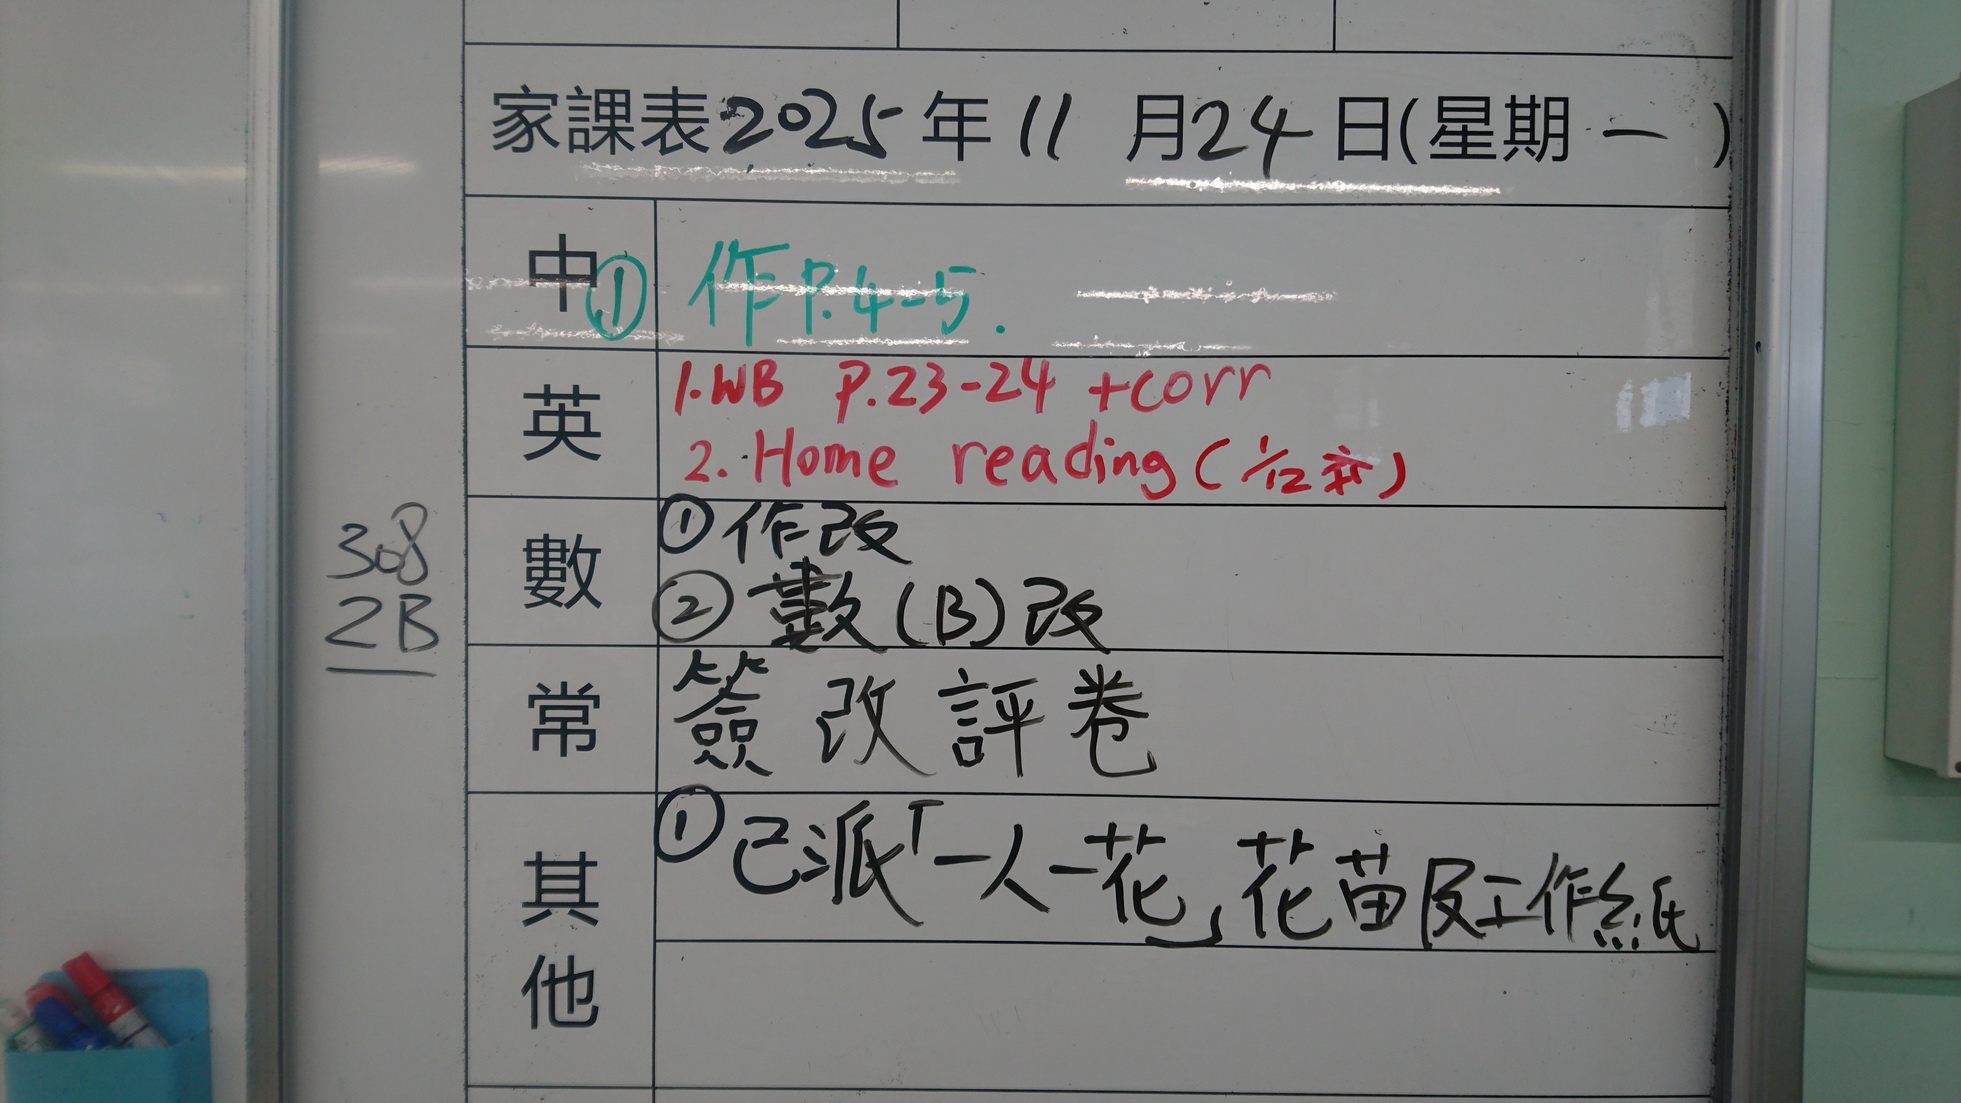 家課表2025年11月24日(星期一)
中① 作P.4-5.
英 1.WB P.23-24 +corr
2. Home reading (1/12交)
數 ①作改
②數(B)改
308
2B
常 簽改評卷
其他 ①已派「一人一花」花苗及工作紙